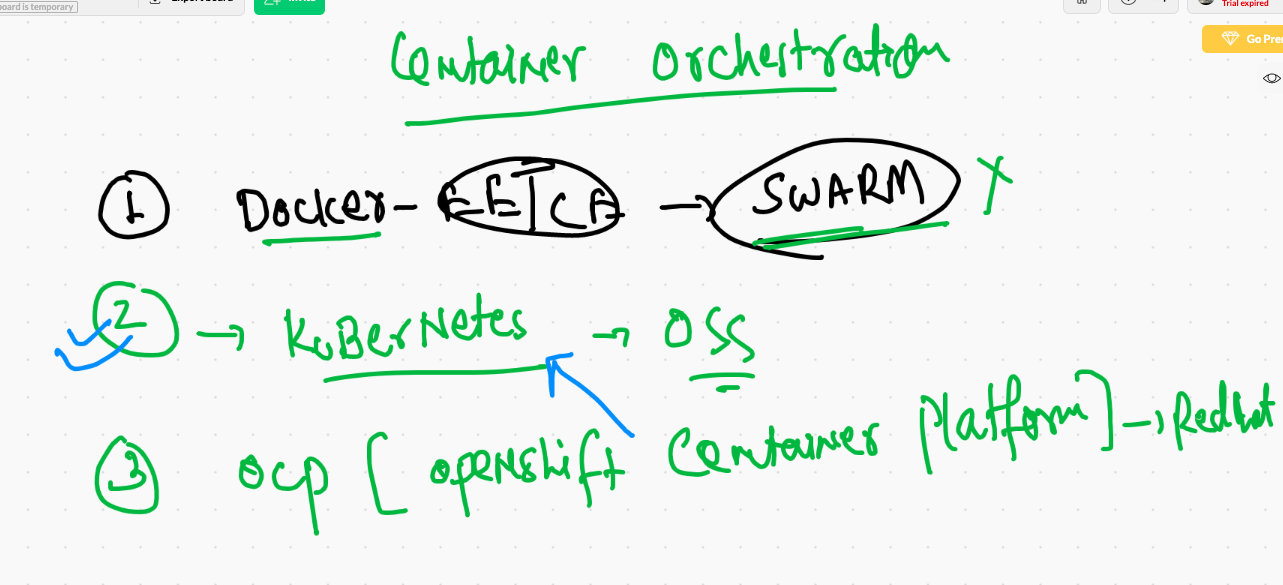 board is temporary
Trial expired
Container Orchestration
1 Docker - EE|CE → SWARM X
2 → KuBerNetes → OSS
3 OCP [ openshift Container Platform ] → Redhat